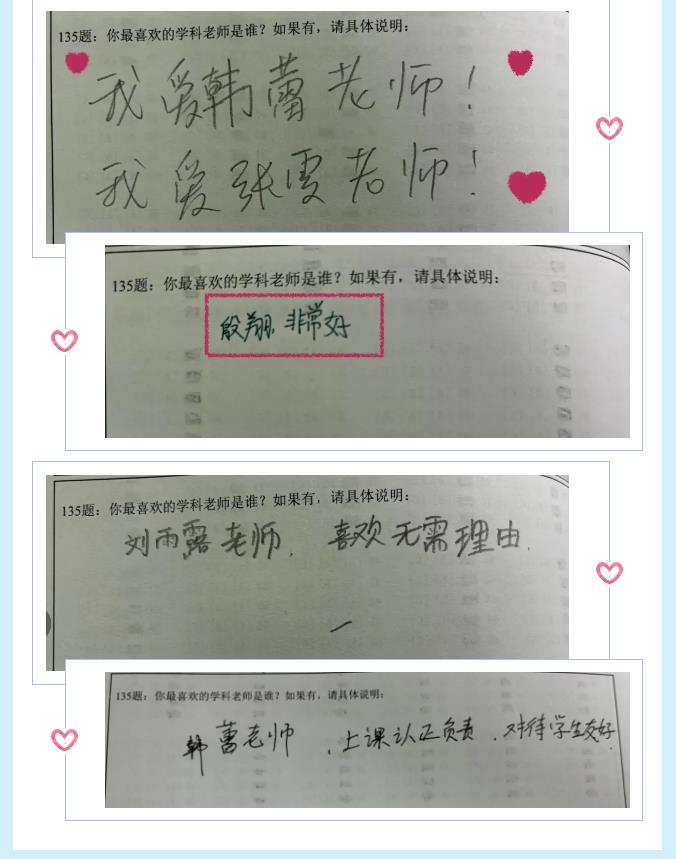 135题：你最喜欢的学科老师是谁？如果有，请具体说明：
我爱韩蕾老师！
我爱张雯老师！
135题：你最喜欢的学科老师是谁？如果有，请具体说明：
殷翔，非常好
135题：你最喜欢的学科老师是谁？如果有，请具体说明：
刘雨露老师， 喜欢无需理由.
135题：你最喜欢的学科老师是谁？如果有，请具体说明：
韩蕾老师，上课认正负责，对待学生友好.